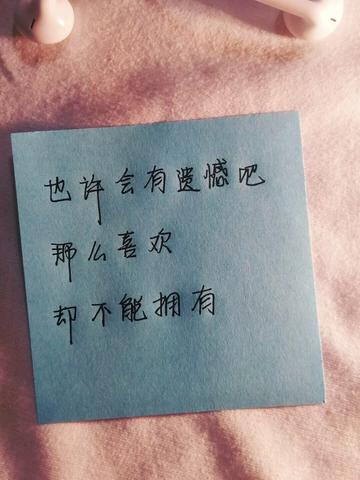 也许会有遗憾吧
那么喜欢
却不能拥有